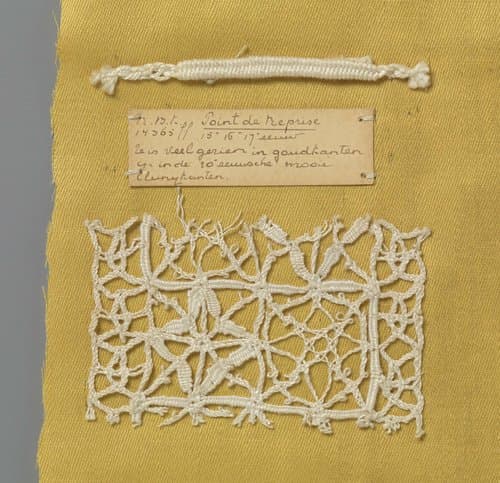 Point de Reprise
14365 15e 16e 17e eeuw
Ze is veel gezien in goudkanten
en in de 20e eeuwsche mooie
Clunykanten.